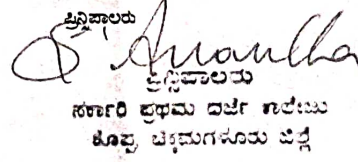 ಪ್ರಿನ್ಸಿಪಾಲರು
S Anantha
ಪ್ರಿನ್ಸಿಪಾಲರು
ಸರ್ಕಾರಿ ಪ್ರಥಮ ದರ್ಜೆ ಕಾಲೇಜು
ಕೊಪ್ಪ, ಚಿಕ್ಕಮಗಳೂರು ಜಿಲ್ಲೆ